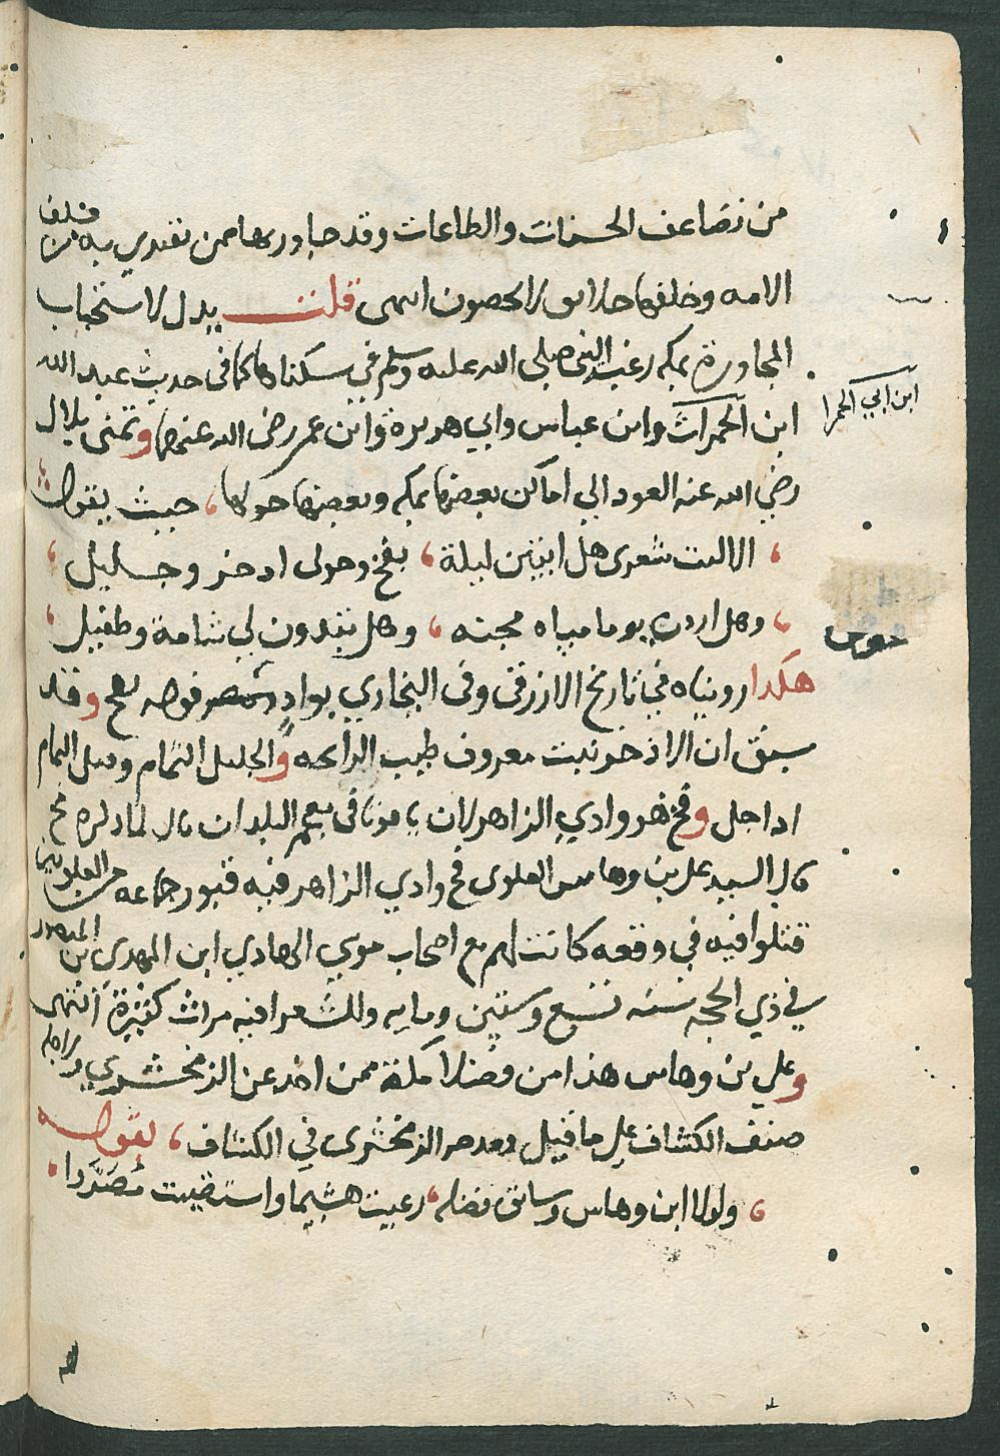 من تضاعف الحسنات والطاعات وقد جاور بها ممن نقتدي به من سلف
الامه وخلفها خلايق لا يحصون انتهى قلت يدل لاستحباب
المجاورة بمكه رغبة النبي صلى الله عليه وسلم في سكناها كما في حديث عبد الله
ابن الحمرا وابن عباس وابي هريرة وابن عمر رضي الله عنهم وتمنى بلال
ابن ابي الحمرا
رضي الله عنه العود الي اماكن بعضها بمكه وبعضها حولها، حيث يقول
، الا ليت شعرى هل ابيتن ليلة، بفخ وحولى اذخر وجليل،
، وهل اردن يوما مياه مجنه، وهل يبدون لي شامة وطفيل،
هكذا رويناه في تاريخ الازرقي وفى البخاري بواد فوضه بفخ وقد
سبق ان الاذخر نبت معروف طيب الرائحه والجليل الثمام وقيل الثمام
اذا جل وفخ هو وادي الزاهر لان ياقوتا في معجم البلدان قال لما ذكره فخ
قال السيد على بن وهاس العلوى فخ وادي الزاهر فيه قبور جماعه من العلويين
قتلوا فيه في وقعه كانت لهم مع اصحاب موسي الهادي ابن المهدي بن المنصور
في ذي الحجه سنه تسع وستين ومايه وللشعرا فيه مراث كثيرة انتهى
وعلي بن وهاس هذا من فضلا مكة ممن اخذ عن الزمخشري ولاجله
صنف الكشاف على ما قيل ومدحه الزمخشرى في الكشاف، بقوله
، ولولا ابن وهاس وسابق فضله، رعيت هشيما واستقيت مصردا،